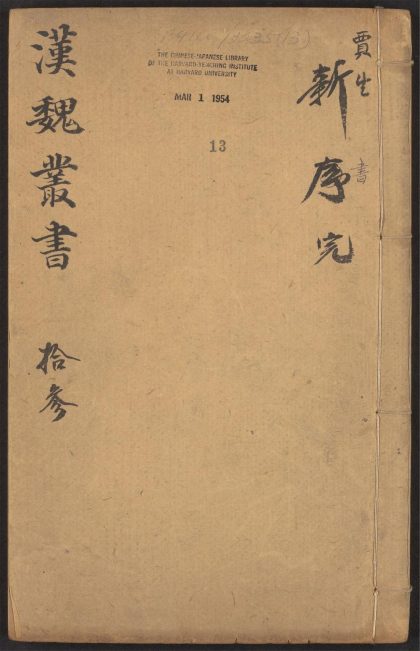 賈生
新序完
書
THE CHINESE-JAPANESE LIBRARY
OF THE HARVARD-YENCHING INSTITUTE
AT HARVARD UNIVERSITY
MAR 1 1954
13
漢魏叢書
拾参